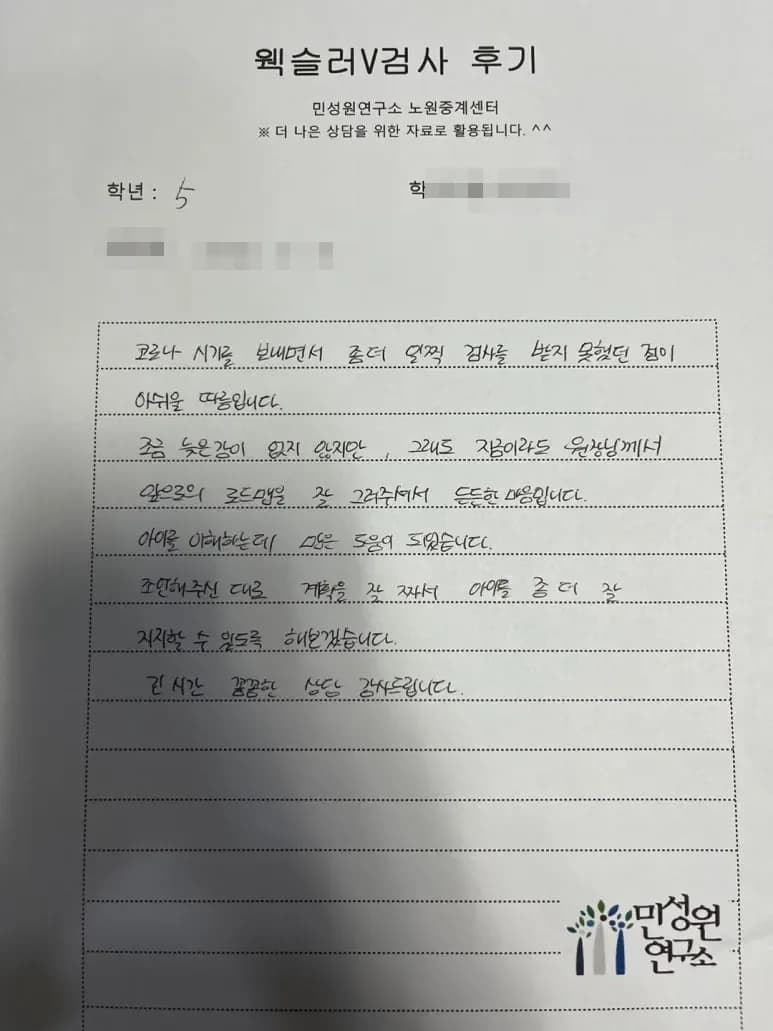 웩슬러V검사 후기
민성원연구소 노원중계센터
※ 더 나은 상담을 위한 자료로 활용됩니다. ^^
학년 : 5
학
코로나 시기를 보내면서 좀더 일찍 검사를 받지 못했던 점이
아쉬울 따름입니다.
조금 늦은감이 없지 않지만, 그래도 지금이라도 원장님께서
앞으로의 로드맵을 잘 그려주셔서 든든한 마음입니다.
아이를 이해하는데 많은 도움이 되었습니다.
조언해주신 대로 계획을 잘 짜서 아이를 좀 더 잘
지지할 수 있도록 해보겠습니다.
긴 시간 꼼꼼한 상담 감사드립니다.
민성원
연구소